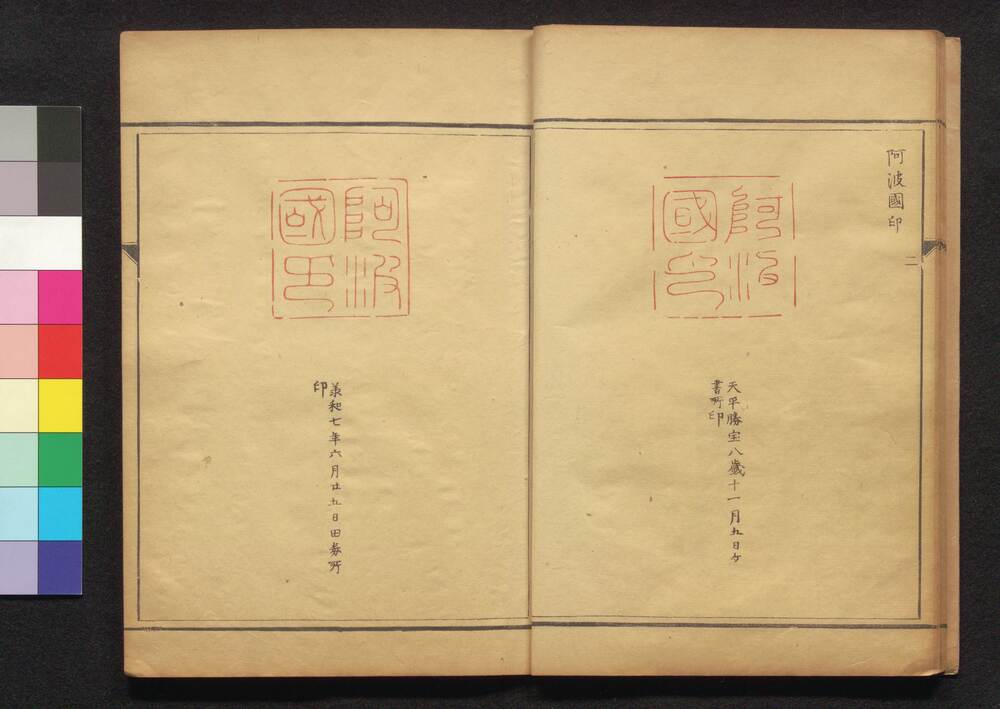 阿波國印
二
阿波
國印
天平勝宝八歳十一月五日ケ
書所印
阿波
國印
承和七年六月廿五日田券所
印